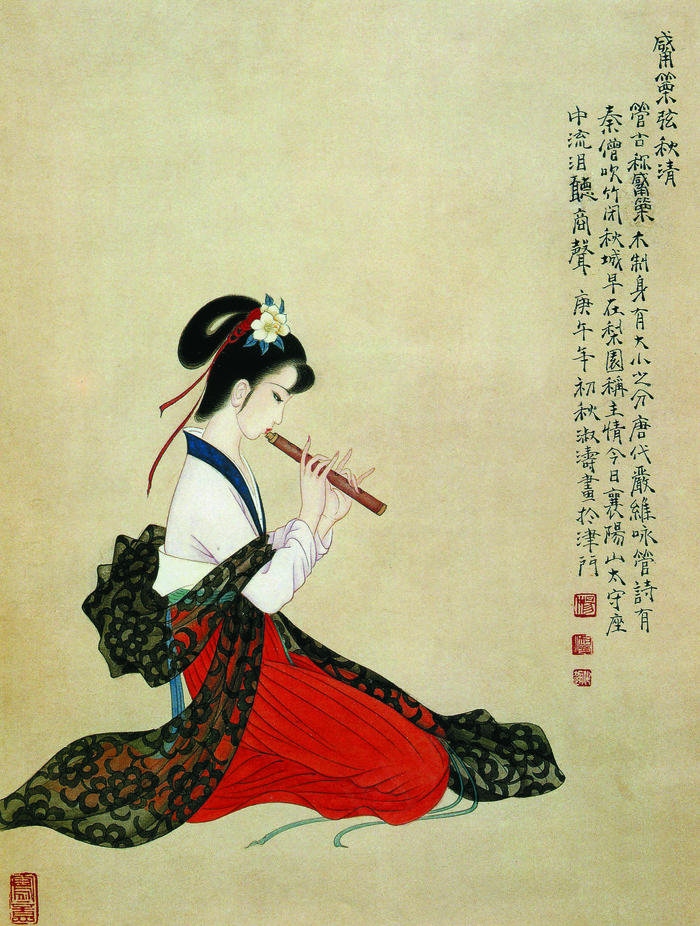 觱篥弦秋清
管古称觱篥木制身有大小之分唐代嚴維咏管詩有
秦僧吹竹闭秋城早在梨園稱主情今日襄陽山太守座
中流泪聽商聲 庚午年初秋淑濤畫於津門
楊